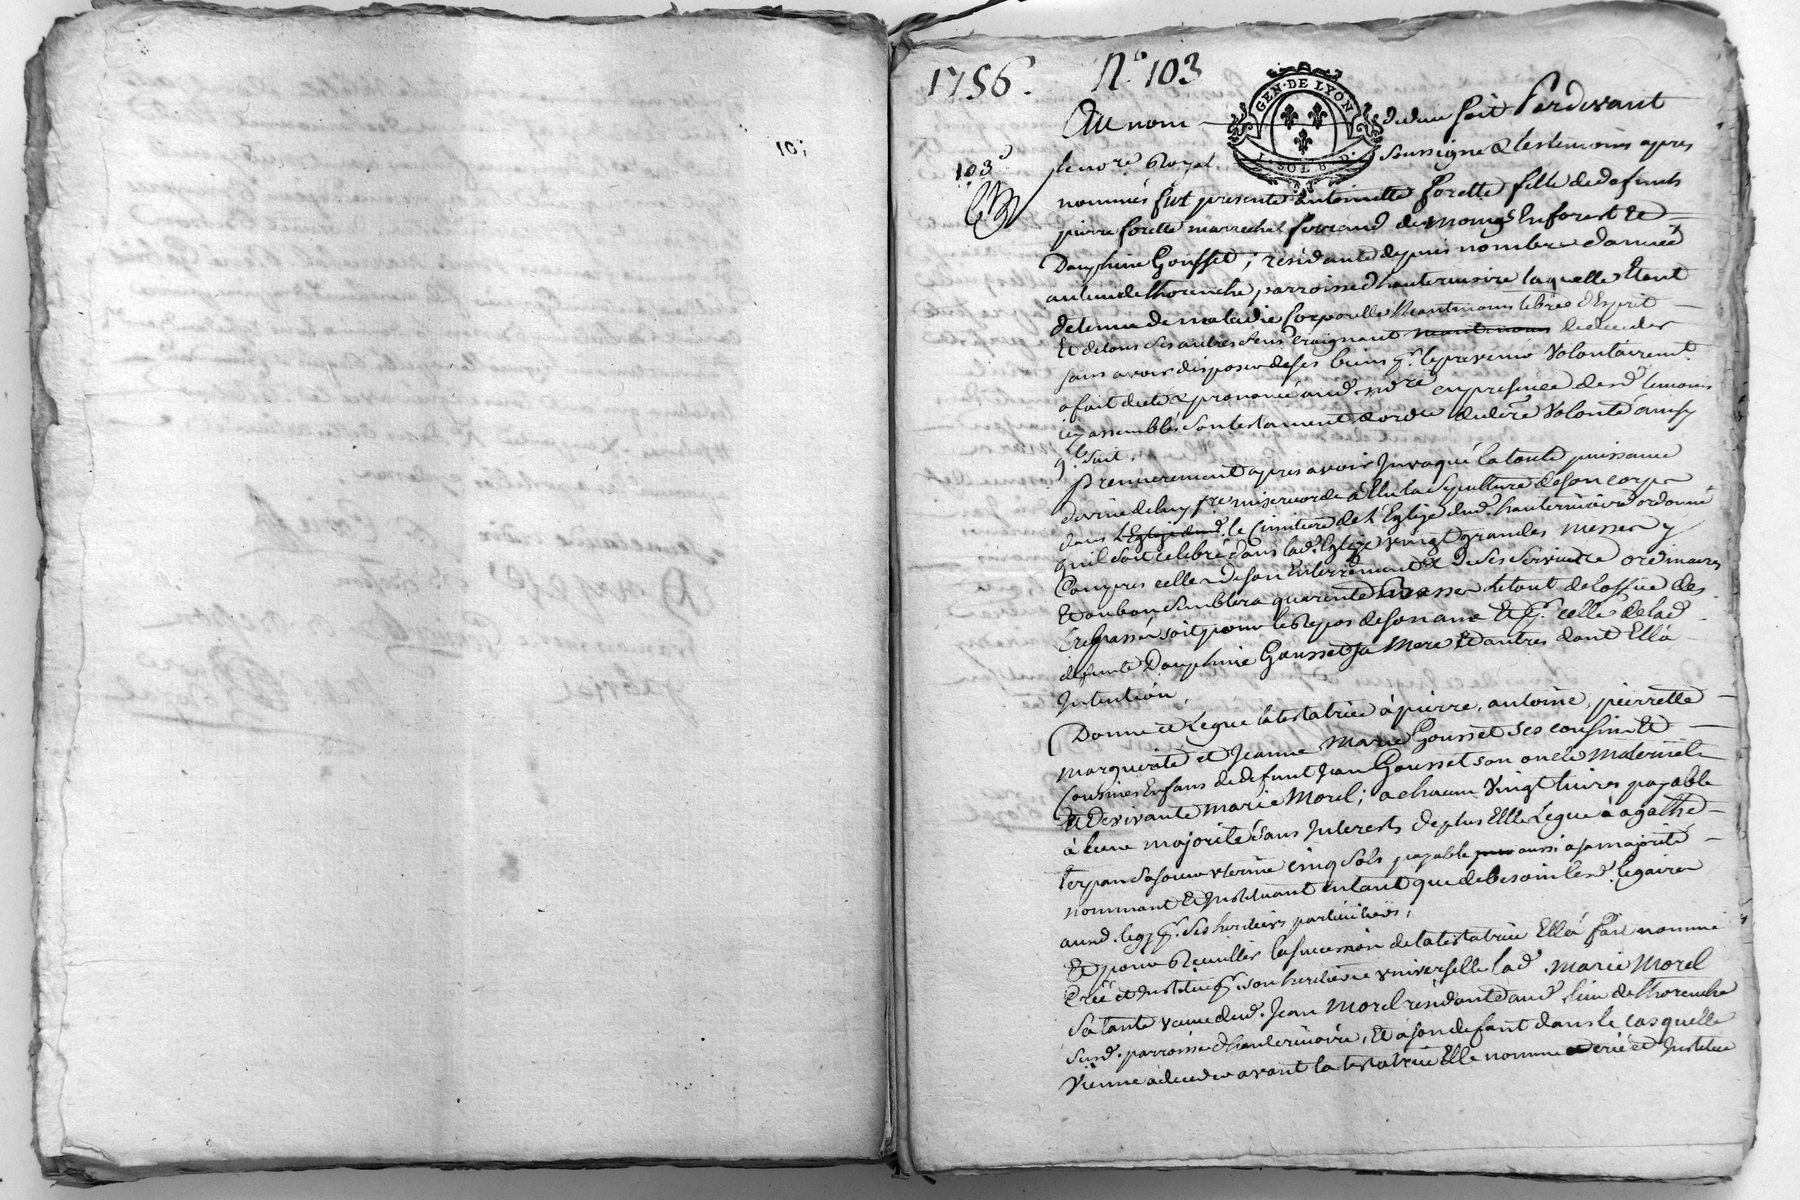 10i
1756. N.° 103
GEN. DE LYON
Au nom de dieu soit Pardevant
103e
le no.re Royal soussigné & les temoins apres
nommés fut presente antoinette forette fille de defunts
pierre forette marechal ferrand de mong Enforest et
Dauphine Gousset; residante depuis nombre d'année
au lieu de lhorenche parroisse d'hauterivoire laquelle Etant
detenue de maladie Corporelle Neantmoins libre d'Esprit
Et de tous ses autres sens Craignant neantmoins de deceder
sans avoir disposer de ses biens p.r le prevenir Volontairem.t
a fait dicté & prononcé aud. no.re en presence desd. temoins
icy assemblés son testament & ordre de der.re Volonté ainsy
q.l suit.
Premierement apres avoir Invoqué la toute puissance
divine de luy f.re misericorde à Elu la Sepulture de son corps
dans l'Eglise dud. le Cimitiere de l'Eglise dud. hauterivoire ordonné
qu'il soit celebré dans lad. Eglize vingt grandes messes y
Compris celles de son Enterrement & de ses Services ordinaires
Et au bout semblera quarente messes le tout de l'office des
trepassés soit pour le Repos de son ame Et p.r celle de lad.
defunte Dauphine Gousset sa Mere Et autres dont Ella
Intention
Donne et Legue la testatrice à pierre, antoine, pierrette
marguerite et Jeanne Marie Gousset ses cousins Et
Cousines Enfans de defunt Jean Gousset son oncle Maternel
Et de vivante marie Morel; a chacun Vingt livres payable
à leur majorité sans Interests de plus Elle Legue à agathe
terpan sa soeur uterine cinq sols payable aussi a sa majorité
nommant Et Instituant entant que de besoin lesd. legaires
auxd. legs p.r ses heritiers particuliers;
Et pour Recuillir la succession de la testatrice Ella fait nommé
Créé et Institué p.r son heritiere universelle lad. marie Morel
Sa tante veuve dud. Jean Morel residante aud. lieu de lhorenche
susd. parroisse d'hauterivoire, Et a son defaut dans le cas quelle
Vienne à deceder avant la testatrice Elle nomme crée et Institue